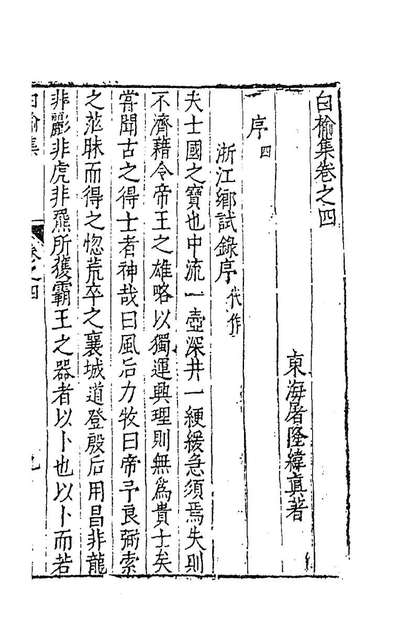 白榆集卷之四
東海屠隆緯真著
序四
浙江鄉試錄序代作
夫士國之寶也中流一壺深井一綆緩急須焉失則
不濟藉令帝王之雄略以獨運興理則無為貴士矣
嘗聞古之得士者神哉曰風后力牧曰帝予良弼索
之茫昧而得之惚荒卒之襄城道登殷后用昌非龍
非彲非虎非羆所獲霸王之器者以卜也以卜而若
白榆集
卷之四
九